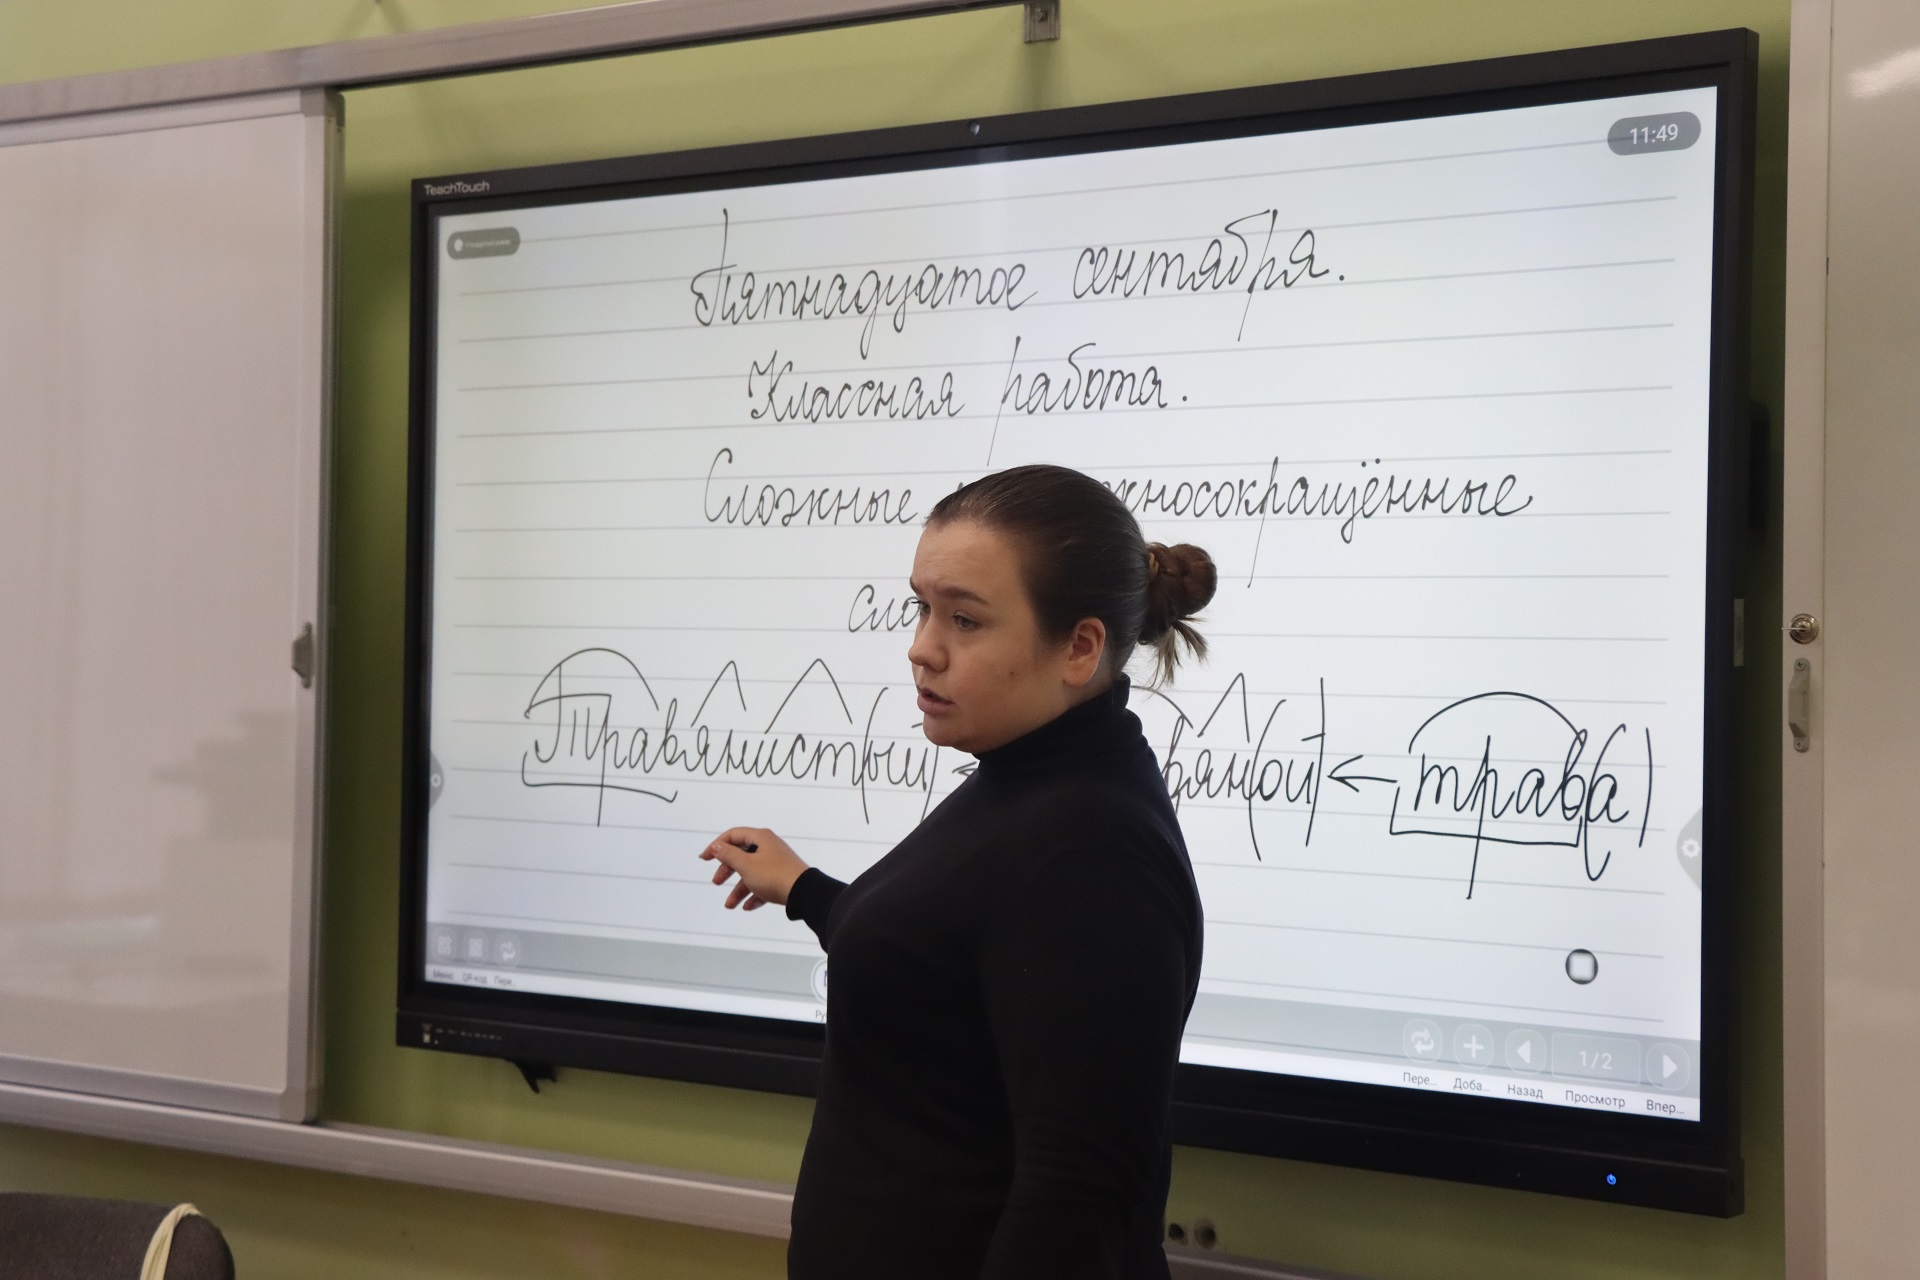 TeachTouch
11:49
Пятнадцатое сентября.
Классная работа.
Сложные сокращённые
Травянист(ый) ← ← трав(а)
Меню QR-код Пере...
1/2
Пере... Доба... Назад Просмотр Впер...